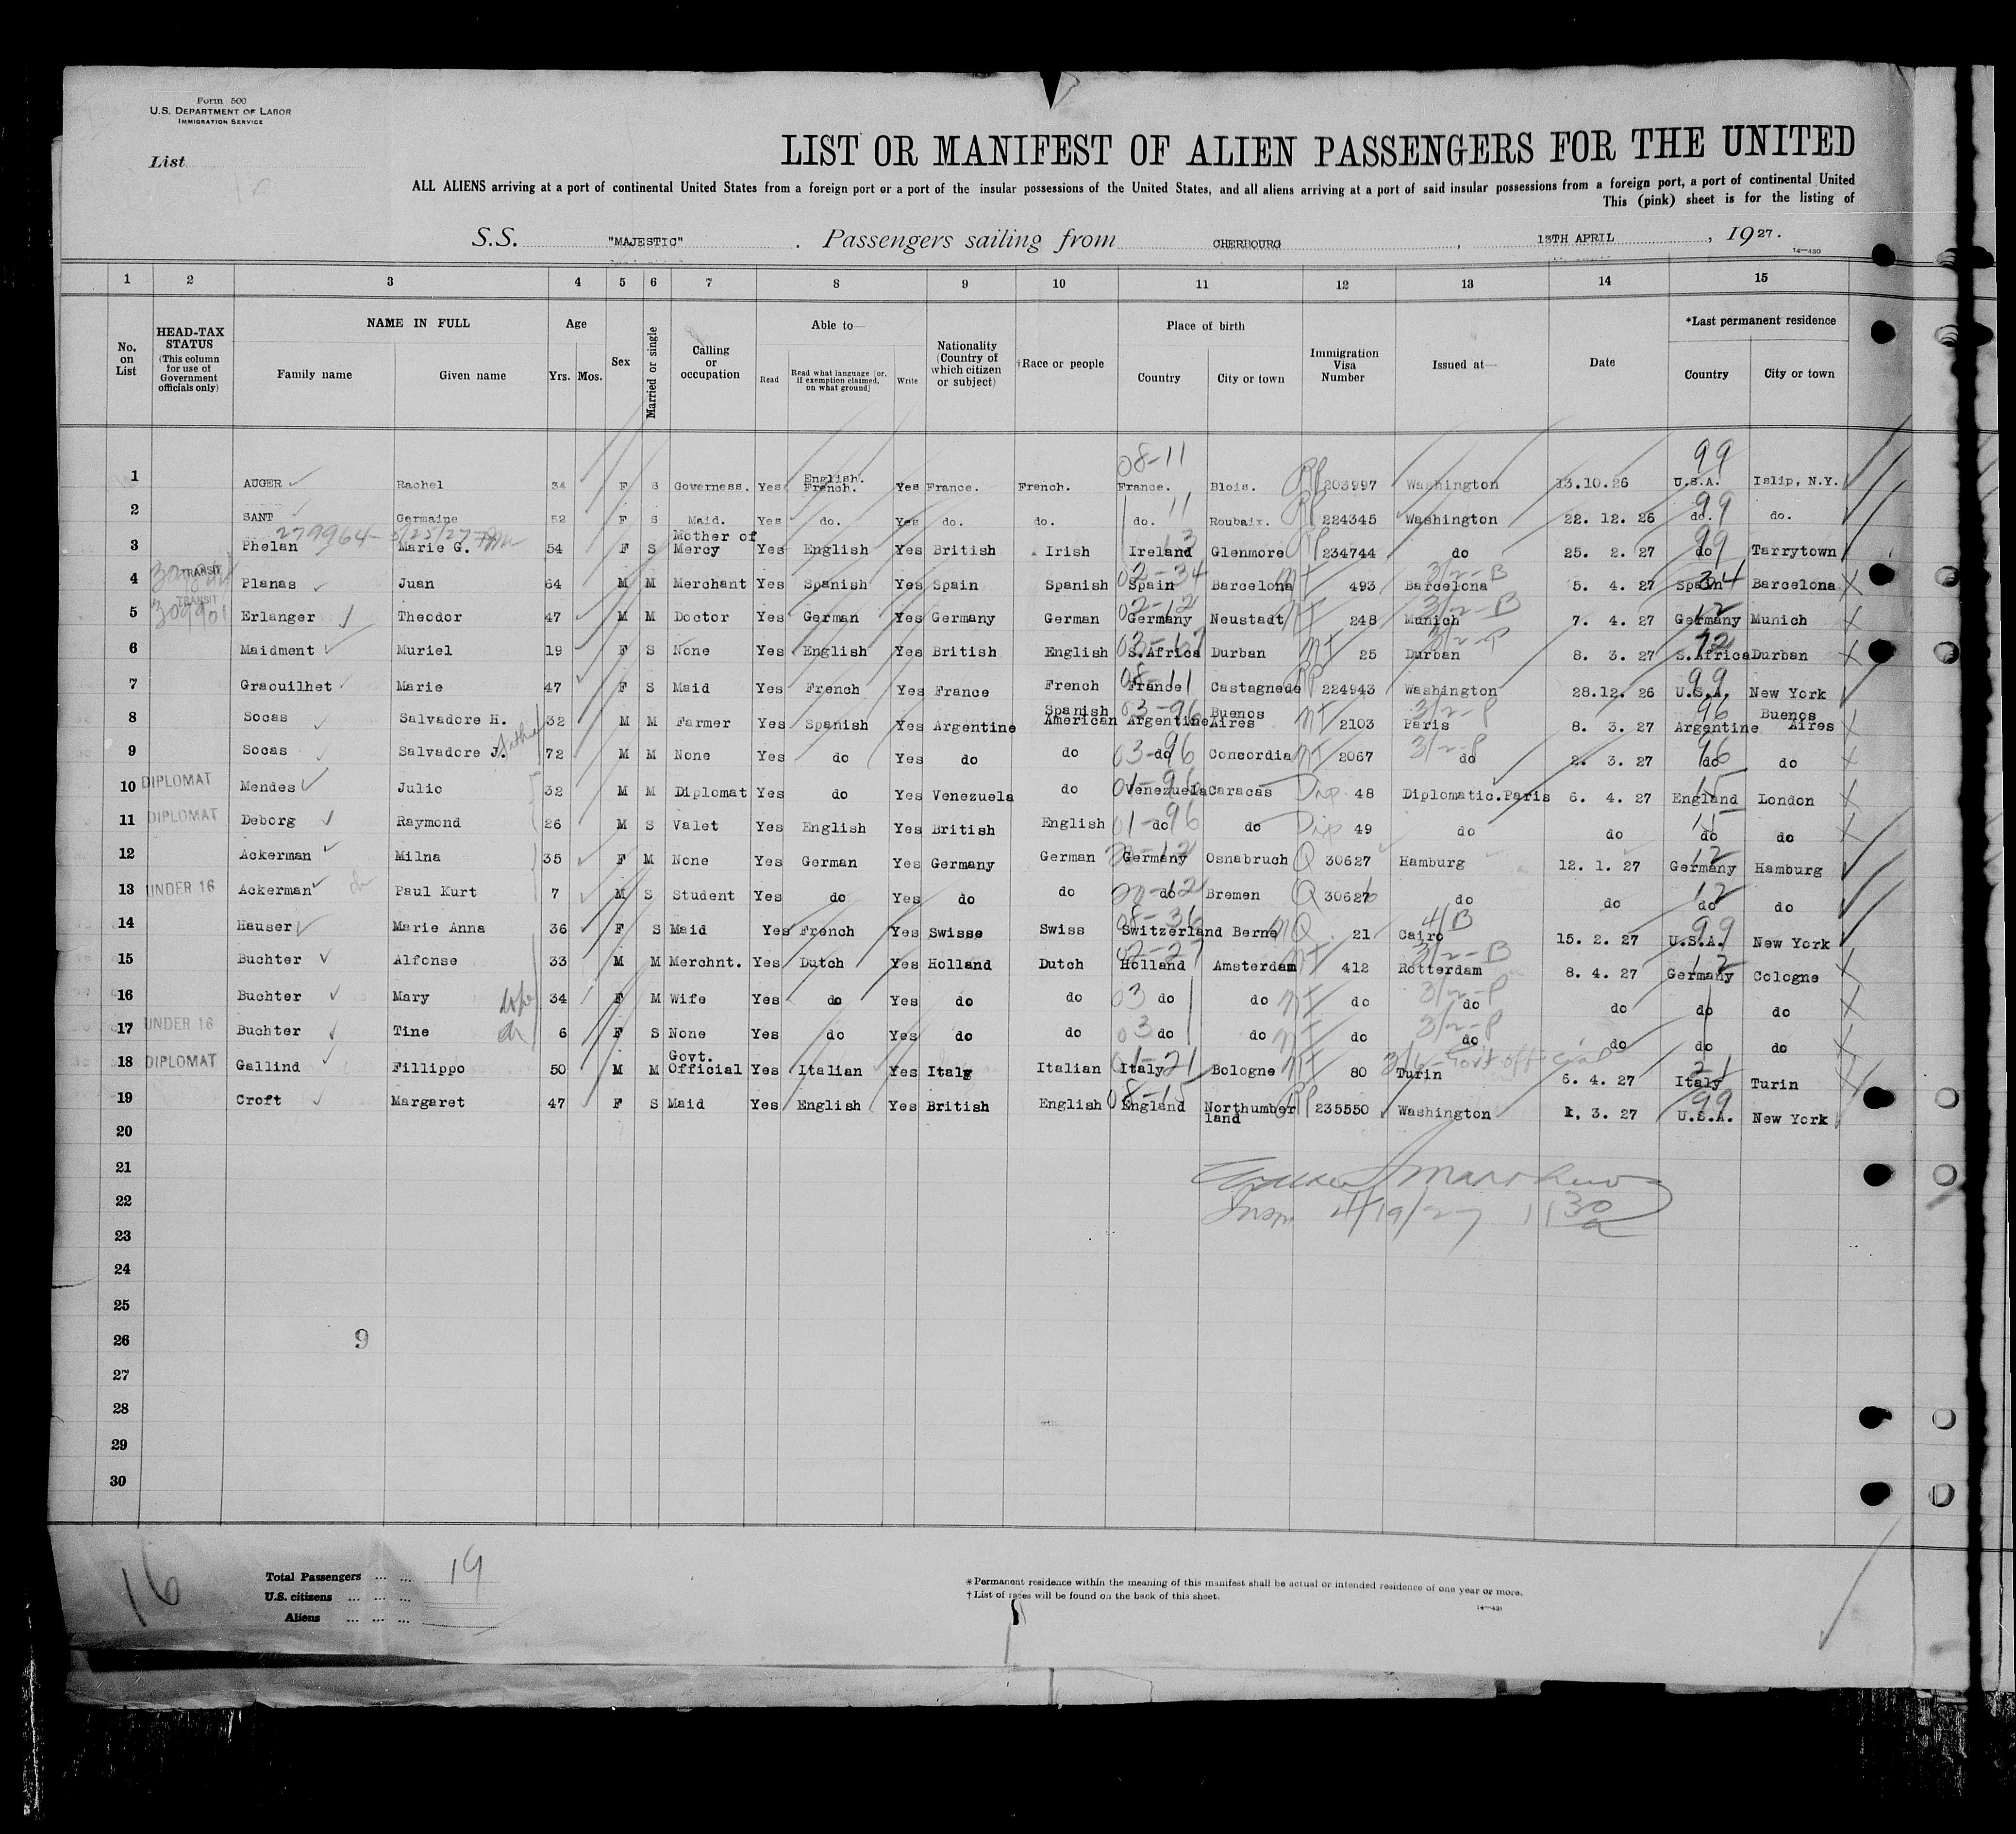 Form 500
U.S. DEPARTMENT OF LABOR
IMMIGRATION SERVICE
List
LIST OR MANIFEST OF ALIEN PASSENGERS FOR THE UNITED
ALL ALIENS arriving at a port of continental United States from a foreign port or a port of the insular possessions of the United States, and all aliens arriving at a port of said insular possessions from a foreign port, a port of continental United
This (pink) sheet is for the listing of
S.S. "MAJESTIC" . Passengers sailing from CHERBOURG , 13TH APRIL , 1927.
14—430
1 2 3 4 5 6 7 8 9 10 11 12 13 14 15
No. on List
HEAD-TAX STATUS (This column for use of Government officials only)
NAME IN FULL
Family name Given name
Age
Yrs. Mos.
Sex
Married or single
Calling or occupation
Able to—
Read Read what language [or, if exemption claimed, on what ground] Write
Nationality (Country of which citizen or subject)
†Race or people
Place of birth
Country City or town
Immigration Visa Number
Issued at—
Date
*Last permanent residence
Country City or town
08-11 99
1 AUGER Rachel 34 F S Governess. Yes English. French. Yes France. French. France. Blois. RP 203997 Washington 13.10.26 U.S.A. Islip, N.Y.
11 99
2 SANT Germaine 52 F S Maid. Yes do. Yes do. do. do. Roubaix. RP 224345 Washington 22. 12. 26 do. do.
277964- 5/25/27
3 Phelan Marie G. 54 F S Mother of Mercy Yes English Yes British Irish Ireland 13 Glenmore RP 234744 do 25. 2. 27 do 99 Tarrytown
4 TRANSIT Planas Juan 64 M M Merchant Yes Spanish Yes Spain Spanish 02-34 Spain Barcelona NI 493 3/2-B Barcelona 5. 4. 27 Spain 34 Barcelona
5 TRANSIT 309901 Erlanger Theodor 47 M M Doctor Yes German Yes Germany German 02-12 Germany Neustadt NI 248 3/2-B Munich 7. 4. 27 Germany 12 Munich
6 Maidment Muriel 19 F S None Yes English Yes British English S.Africa Durban NI 25 3/2-P Durban 8. 3. 27 S.Africa Durban
7 Graouilhet Marie 47 F S Maid Yes French Yes France French 08-11 France Castagnede RP 224943 Washington 28.12. 26 U.S.A. 99 New York
8 Socas Salvadore H. 32 M M Farmer Yes Spanish Yes Argentine Spanish American 03-96 Argentine Buenos Aires NI 2103 3/2-P Paris 8. 3. 27 Argentine 96 Buenos Aires
9 Socas Salvadore J. father 72 M M None Yes do Yes do do 03-96 do Concordia NI 2067 3/2-P do 2. 3. 27 do 96 do
10 DIPLOMAT Mendes Julio 32 M M Diplomat Yes do Yes Venezuela do 01-96 Venezuela Caracas Dip 48 Diplomatic.Paris 6. 4. 27 England 15 London
11 DIPLOMAT Deborg Raymond 26 M S Valet Yes English Yes British English 01-96 do do Dip 49 do do do 15 do
12 Ackerman Milna 35 F M None Yes German Yes Germany German Germany Osnabruch Q 30627 Hamburg 12. 1. 27 Germany 12 Hamburg
13 UNDER 16 Ackerman Paul Kurt 7 M S Student Yes do Yes do do do Bremen Q 30626 do do do 12 do
14 Hauser Marie Anna 36 F S Maid Yes French Yes Swisse Swiss 08-36 Switzerland Berne NQ 21 4/B Cairo 15. 2. 27 U.S.A. 99 New York
15 Buchter Alfonse 33 M M Merchnt. Yes Dutch Yes Holland Dutch 02-27 Holland Amsterdam NI 412 3/2-B Rotterdam 8. 4. 27 Germany 12 Cologne
16 Buchter Mary wife 34 F M Wife Yes do Yes do do 03 do do NI do 3/2-P do do do do
17 UNDER 16 Buchter Tine 6 F S None Yes do Yes do do 03 do do NI do 3/2-P do do do do
18 DIPLOMAT Gallind Fillippo 50 M M Govt. Official Yes Italian Yes Italg Italian 01-21 Italy Bologne NI 80 3/6-Gov't official Turin 6. 4. 27 Italy 21 Turin
19 Croft Margaret 47 F S Maid Yes English Yes British English 08-15 England Northumber land RP 235550 Washington 1. 3. 27 U.S.A. 99 New York
20
21
22
Insp 4/19/27 11 30 a
23
24
25
26 9
27
28
29
30
16
Total Passengers ... ... 19
U.S. citizens ... ... ...
Aliens ... ... ...
*Permanent residence within the meaning of this manifest shall be actual or intended residence of one year or more.
†List of races will be found on the back of this sheet.
14—431